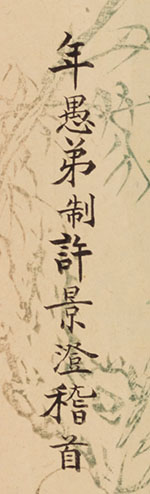 年愚弟制許景澄稽首